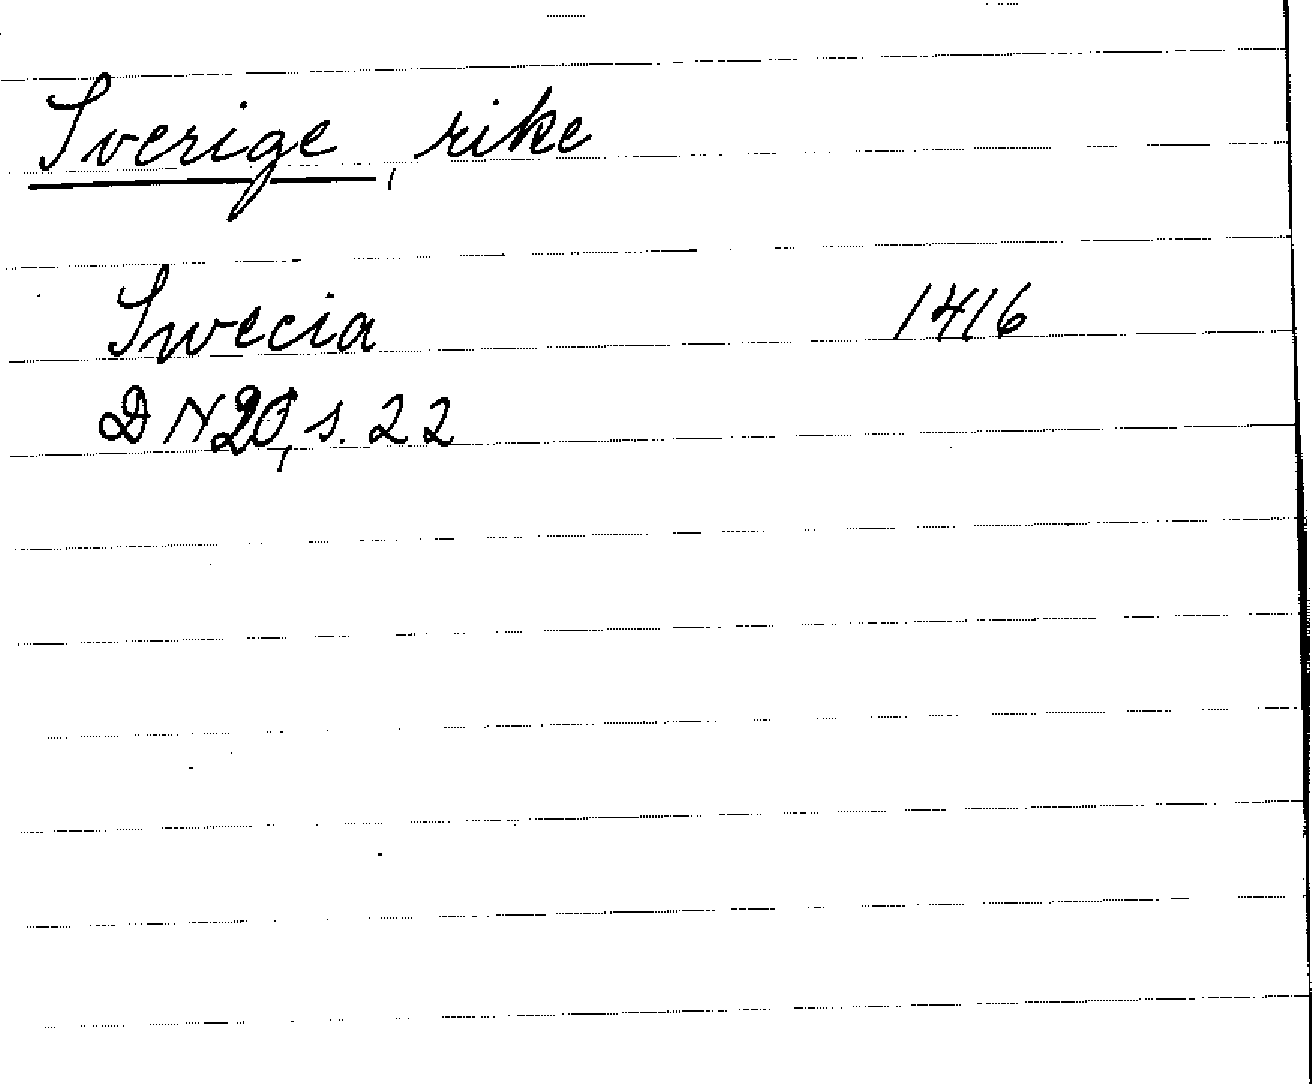 Sverige, rike
Swecia 1416
DN20, s. 22